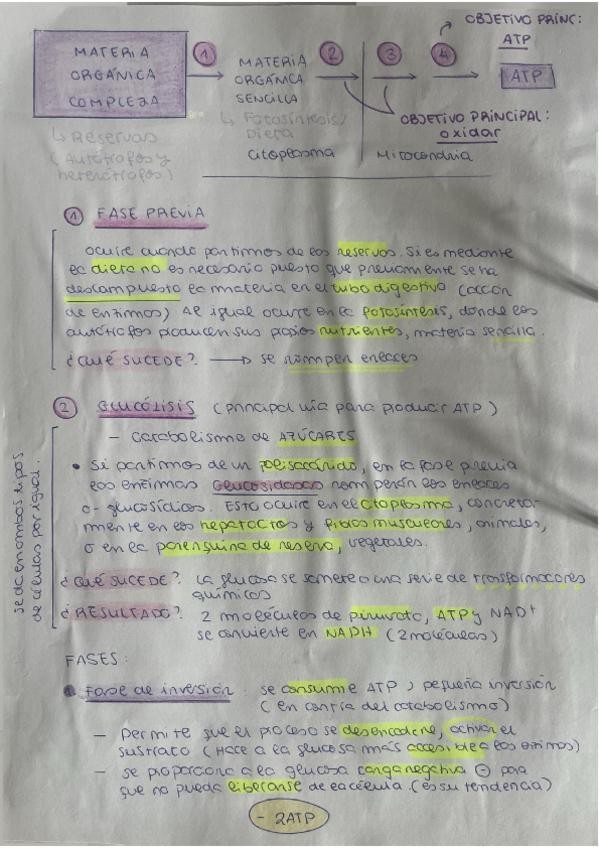 OBJETIVO PRINC:
ATP
MATERIA
ORGÁNICA
COMPLEJA
1
MATERIA
ORGÁNICA
SENCILLA
2
3
4
ATP
↳ Fotosíntesis/
Dieta
OBJETIVO PRINCIPAL:
oxidar
↳ Reservas
(Autótrofos y
heterótrofos)
Citoplasma
Mitocondria
1 FASE PREVIA
ocurre cuando partimos de las reservas. Si es mediante
la dieta no es necesario puesto que previamente se ha
descompuesto la materia en el tubo digestivo (acción
de enzimas) Al igual ocurre en la fotosíntesis, donde los
autótrofos producen sus propios nutrientes, materia sencilla.
¿QUÉ SUCEDE? → se rompen enlaces
2 GLUCÓLISIS (principal vía para producir ATP)
- Catabolismo de AZÚCARES
• Si partimos de un polisacárido, en la fase previa
las enzimas Glucosidasas romperán los enlaces
o-glucosídicos. Esto ocurre en el citoplasma, concreta-
mente en los hepatocitos y fibras musculares, animales,
o en la parénquima de reserva, vegetales.
se da en ambos tipos
de células por igual.
¿QUÉ SUCEDE? La glucosa se somete a una serie de transformaciones
químicas
¿RESULTADO? 2 moléculas de piruvato, ATP y NAD+
se convierte en NADH (2 moléculas)
FASES:
1 Fase de inversión: se consume ATP, pequeña inversión
(en contra del catabolismo)
- Permite que el proceso se desencadene, activar el
sustrato (Hace a la glucosa más accesible a las enzimas)
- se proporciona a la glucosa carga negativa ⊖ para
que no pueda liberarse de la célula. (es su tendencia)
- 2ATP